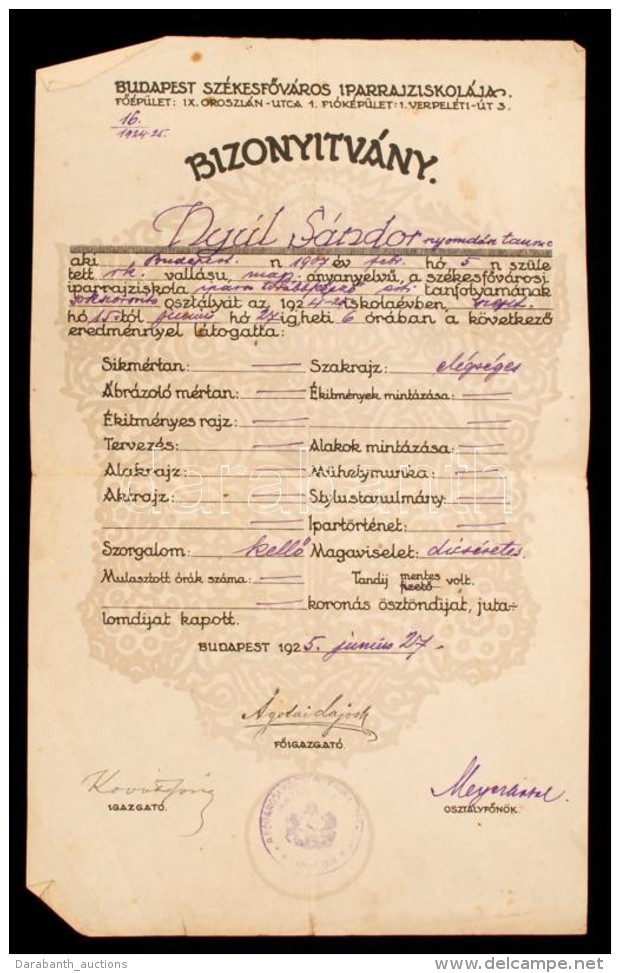 BUDAPEST SZÉKESFŐVÁROS IPARRAJZISKOLÁJA.
FŐÉPÜLET: IX. OROSZLÁN-UTCA 1. FIÓKÉPÜLET: I. VERPELÉTI-ÚT 3.
16.
1924-25.
BIZONYITVÁNY.
Nyúl Sándor nyomdász tanonc
aki Budapest n 1907 év febr. hó 5 n szüle
tett rk. vallásu, mag. anyanyelvü, a székesfővárosi
iparrajziskola tanfolyamának
osztályát az 1924-25 iskolaévben, szept.
hó 15 től junius hó 27 ig, heti 6 órában a következő
eredménnyel látogatta:
Sikmértan: Szakrajz: elégséges
Ábrázoló mértan: Ékitmények mintázása:
Ékitményes rajz:
Tervezés: Alakok mintázása:
Alakrajz: Műhelymunka:
Aktrajz: Stylustanulmány:
Ipartörténet:
Szorgalom: kellő Magaviselet: dicséretes.
Mulasztott órák száma: Tandij mentes fizető volt.
koronás ösztöndijat, juta-
lomdijat kapott.
BUDAPEST 1925. junius 27.
Ágotai Lajos
FŐIGAZGATÓ.
IGAZGATÓ.
OSZTÁLYFŐNÖK.
darabanth
Darabanth_auctions
delcampe.net